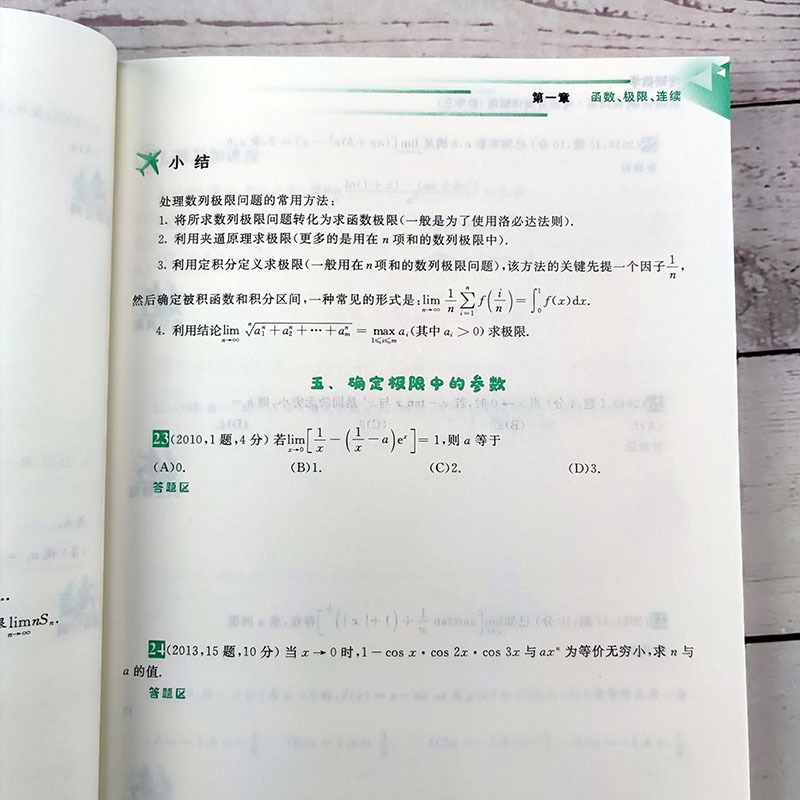 第一章 函数、极限、连续
小 结
处理数列极限问题的常用方法:
1. 将所求数列极限问题转化为求函数极限(一般是为了使用洛必达法则).
2. 利用夹逼原理求极限(更多的是用在 n 项和的数列极限中).
3. 利用定积分定义求极限(一般用在n项和的数列极限问题),该方法的关键先提一个因子 1/n,
然后确定被积函数和积分区间,一种常见的形式是:lim_{n→∞} 1/n ∑_{i=1}^{n} f(i/n) = ∫_0^1 f(x)dx.
4. 利用结论 lim_{n→∞} ⁿ√(a₁ⁿ + a₂ⁿ + ⋯ + aₘⁿ) = max_{1≤i≤m} aᵢ(其中 aᵢ > 0) 求极限.
五、确定极限中的参数
23 (2010,1题,4分) 若 lim_{x→0}[1/x − (1/x − a)eˣ] = 1,则 a 等于
(A)0. (B)1. (C)2. (D)3.
答题区
lim_{n→∞} nSₙ.
24 (2013,15题,10分) 当 x → 0 时,1 − cos x · cos 2x · cos 3x 与 axⁿ 为等价无穷小,求 n 与
a 的值.
答题区